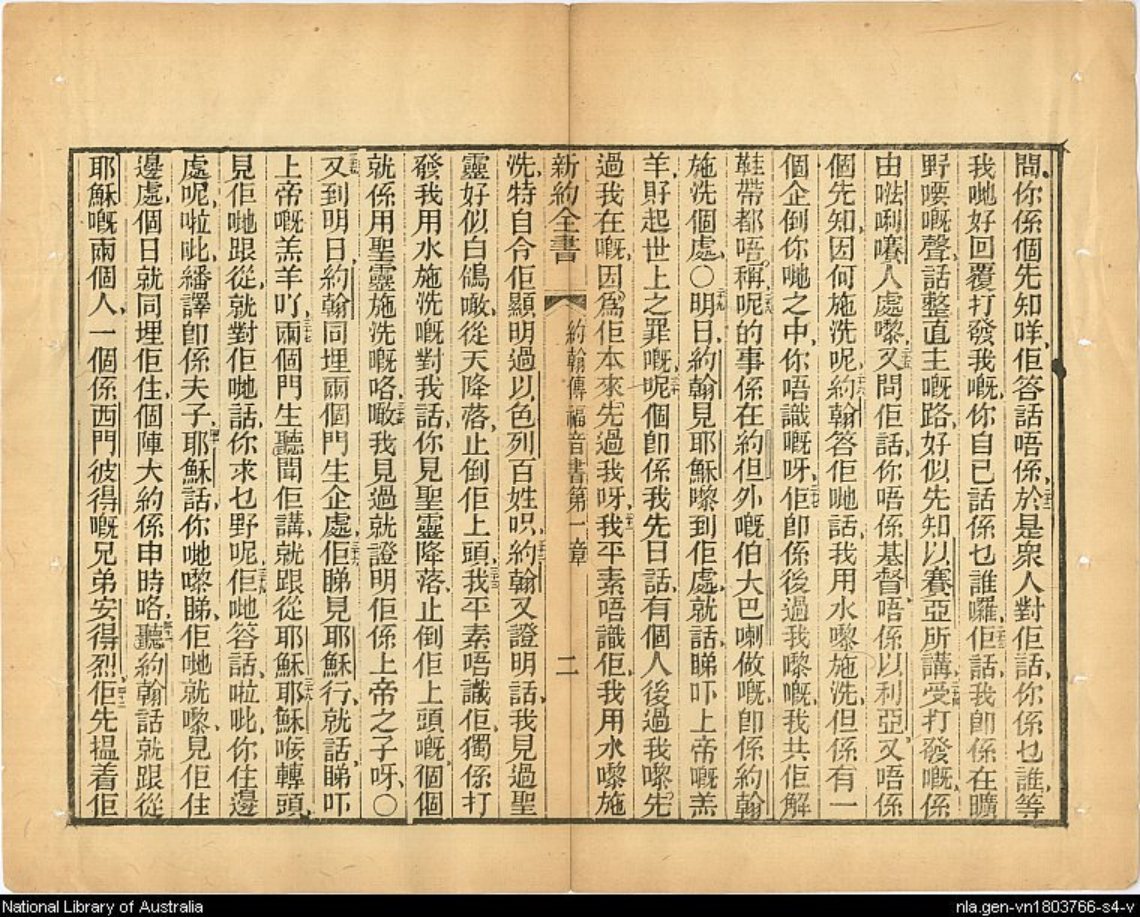 問你係個先知咩佢答話唔係於是衆人對佢話你係乜誰等
我哋好回覆打發我嘅你自己話係乜誰囉佢話我卽係在曠
野喓嘅聲話整直主嘅路好似先知以賽亞所講受打發嘅係
由𠵽唎嚊人處嚟又問佢話你唔係基督唔係以利亞又唔係
個先知因何施洗呢約翰答佢哋話我用水嚟施洗但係有一
個企倒你哋之中你唔識嘅呀佢卽係後過我嚟嘅我共佢解
鞋帶都唔稱呢的事係在約但外嘅伯大巴喇做嘅卽係約翰
施洗個處〇明日約翰見耶穌嚟到佢處就話睇吓上帝嘅羔
羊財起世上之罪嘅呢個卽係我先日話有個人後過我嚟先
過我在嘅因為佢本來先過我呀我平素唔識佢我用水嚟施
新約全書 約翰傳福音書第一章 二
洗特自令佢顯明過以色列百姓呮約翰又證明話我見過聖
靈好似白鴿噉從天降落止倒佢上頭我平素唔識佢獨係打
發我用水施洗嘅對我話你見聖靈降落止倒佢上頭嘅個個
就係用聖靈施洗嘅咯噉我見過就證明佢係上帝之子呀〇
又到明日約翰同埋兩個門生企處佢睇見耶穌行就話睇吓
上帝嘅羔羊吖兩個門生聽聞佢講就跟從耶穌耶穌𠱁轉頭
見佢哋跟從就對佢哋話你求乜野呢佢哋答話啦吡你住邊
處呢啦吡繙譯卽係夫子耶穌話你哋嚟睇佢哋就嚟見佢住
邊處個日就同埋佢住個陣大約係申時咯聽約翰話就跟從
耶穌嘅兩個人一個係西門彼得嘅兄弟安得烈佢先揾着佢
National Library of Australia
nla.gen-vn1803766-s4-v